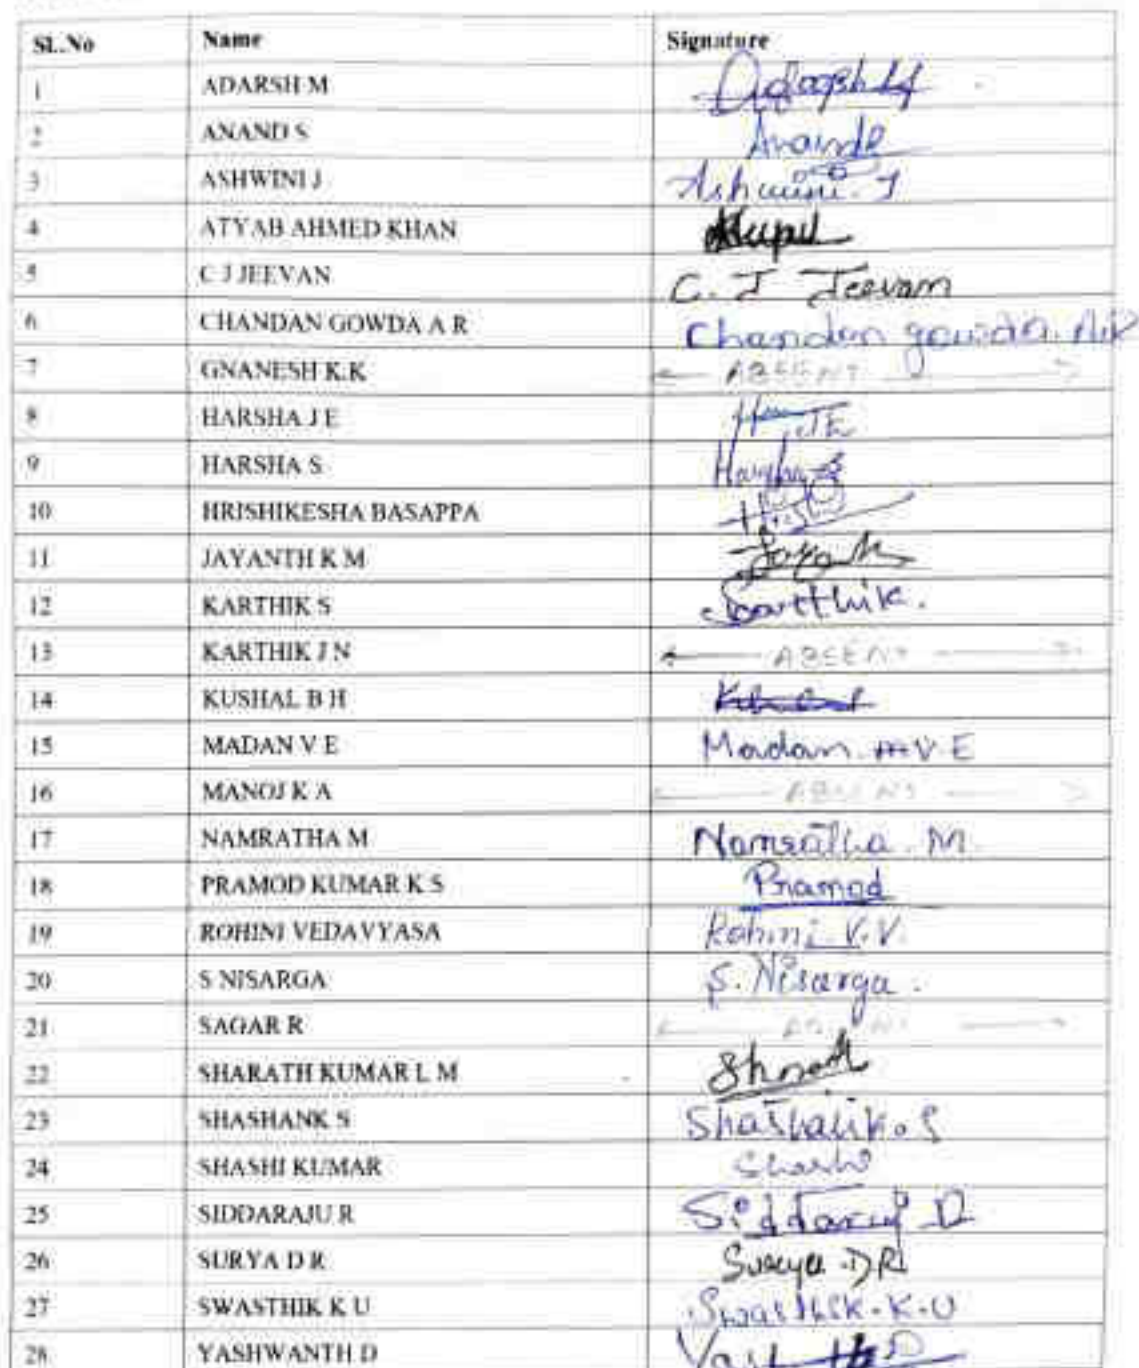 SL.No Name Signature
1 ADARSH M Adarsh M
2 ANAND S Anand
3 ASHWINI J Ashwini. J
4 ATYAB AHMED KHAN
5 C J JEEVAN C. J Jeevan
6 CHANDAN GOWDA A R Chandan gowda. A.R
7 GNANESH K.K ABSENT
8 HARSHA J E
9 HARSHA S Harsha S
10 HRISHIKESHA BASAPPA
11 JAYANTH K M Jayanth
12 KARTHIK S Karthik.
13 KARTHIK J N ABSENT
14 KUSHAL B H
15 MADAN V E Madan V E
16 MANOJ K A ABSENT
17 NAMRATHA M Namratha. M
18 PRAMOD KUMAR K S Pramod
19 ROHINI VEDAVYASA Rohini V.V.
20 S NISARGA S. Nisarga.
21 SAGAR R ABSENT
22 SHARATH KUMAR L M Sharath
23 SHASHANK S Shashank. S
24 SHASHI KUMAR Shashi
25 SIDDARAJU R
26 SURYA D R Surya .D R
27 SWASTHIK K U Swasthik. K. U
28 YASHWANTH D